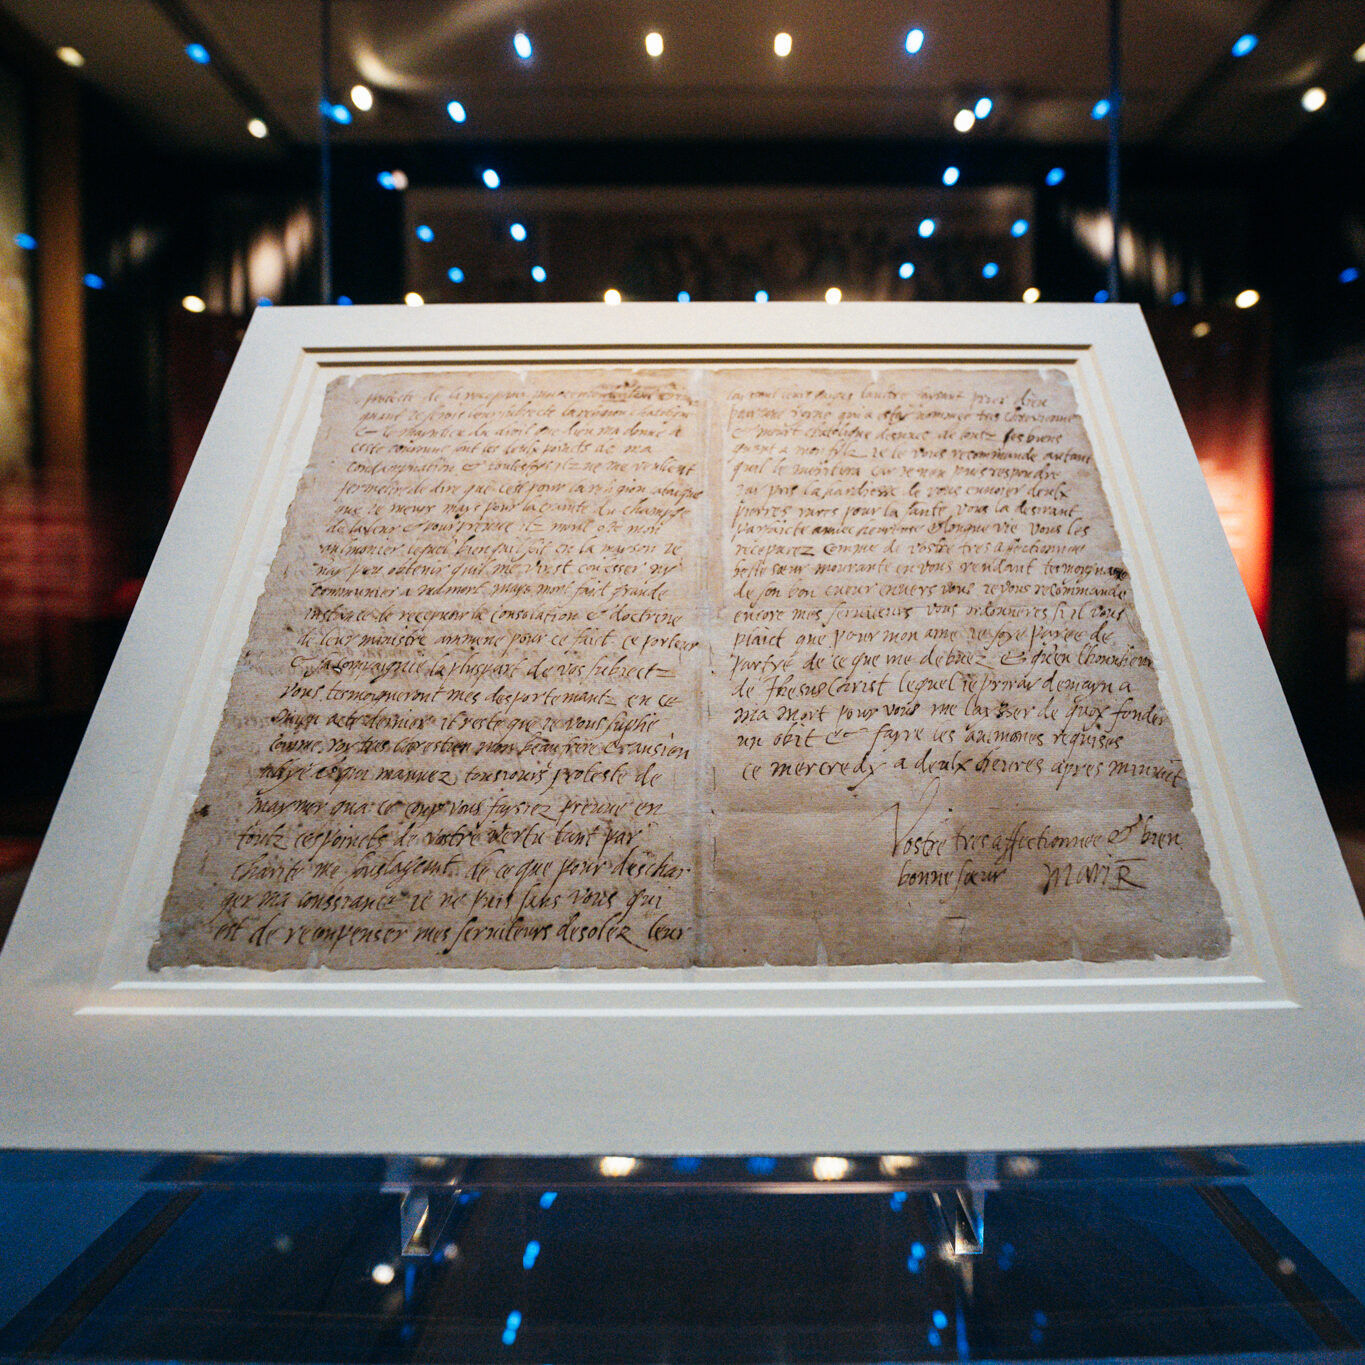 quant je serois leur subiecte la religion chatolique
& le meintien du droit que dieu ma donné a
ceste couronne sont les deulx points de ma
condamnation & toutesfoys ilz ne me veullent
permetre de dire que cest pour la religion catolique
que je meurs mays pour la crainte du champs
de la leur & pour preuve ilz mont oste mon
aulmonier lequel bien quil soit en la mayson je
nay peu obtenir quil me vinst confesser ny
communier a ma mort mays mont fait grande
instance de recepvoir la consolation & doctrine
de leur ministre ammene pour ce fait ce porteur
& sa compaignie la pluspart de vos subiectz
vous tesmoigneront mes desportemantz en ce
mien acte dernier il reste que je vous suplie
comme roy tres chrestien mon beau frere & ansien
allye & qui mauvez tousjours proteste de
maymer qua ce coup vous faysiez preuve en
toutz ces poincts de vostre vertu tant par
charite me soulageant de ce que pour deschar
ger ma conssiance je ne puis sans vous qui
est de recompenser mes serviteurs desolez leur
layssant leurs gages laultre faysant prier dieu
pour une royne qui a estay nommee tres chrestienne
& meurt chatolique desnuee de toutz ses biens
quant a mon fylz je le vous recommande autant
quil le meritera car je nen puis respondre
Jay pris la hardiesse de vous envoier deulx
pierres rares pour la sante vous la desirant
parfaicte avvec heureuse & longue vie vous les
recepvrez comme de vostre tres affectionnee
belle sœur mourante en vous rendant tesmoygnage
de son bon cueur envers vous je vous recommande
encore mes serviteurs vous ordonneres si il vous
plaict que pour mon ame je soye payee de
partye de ce que me debvez & quen lhonneur
de Jhesus Christ lequel je priray demayn a
ma mort pour vous me laysser de quoy fonder
un obit & fayre les aulmones requises
ce mercredy a deulx heures apres minuit
Vostre tres affectionnee & bien
bonne sœur Mari R